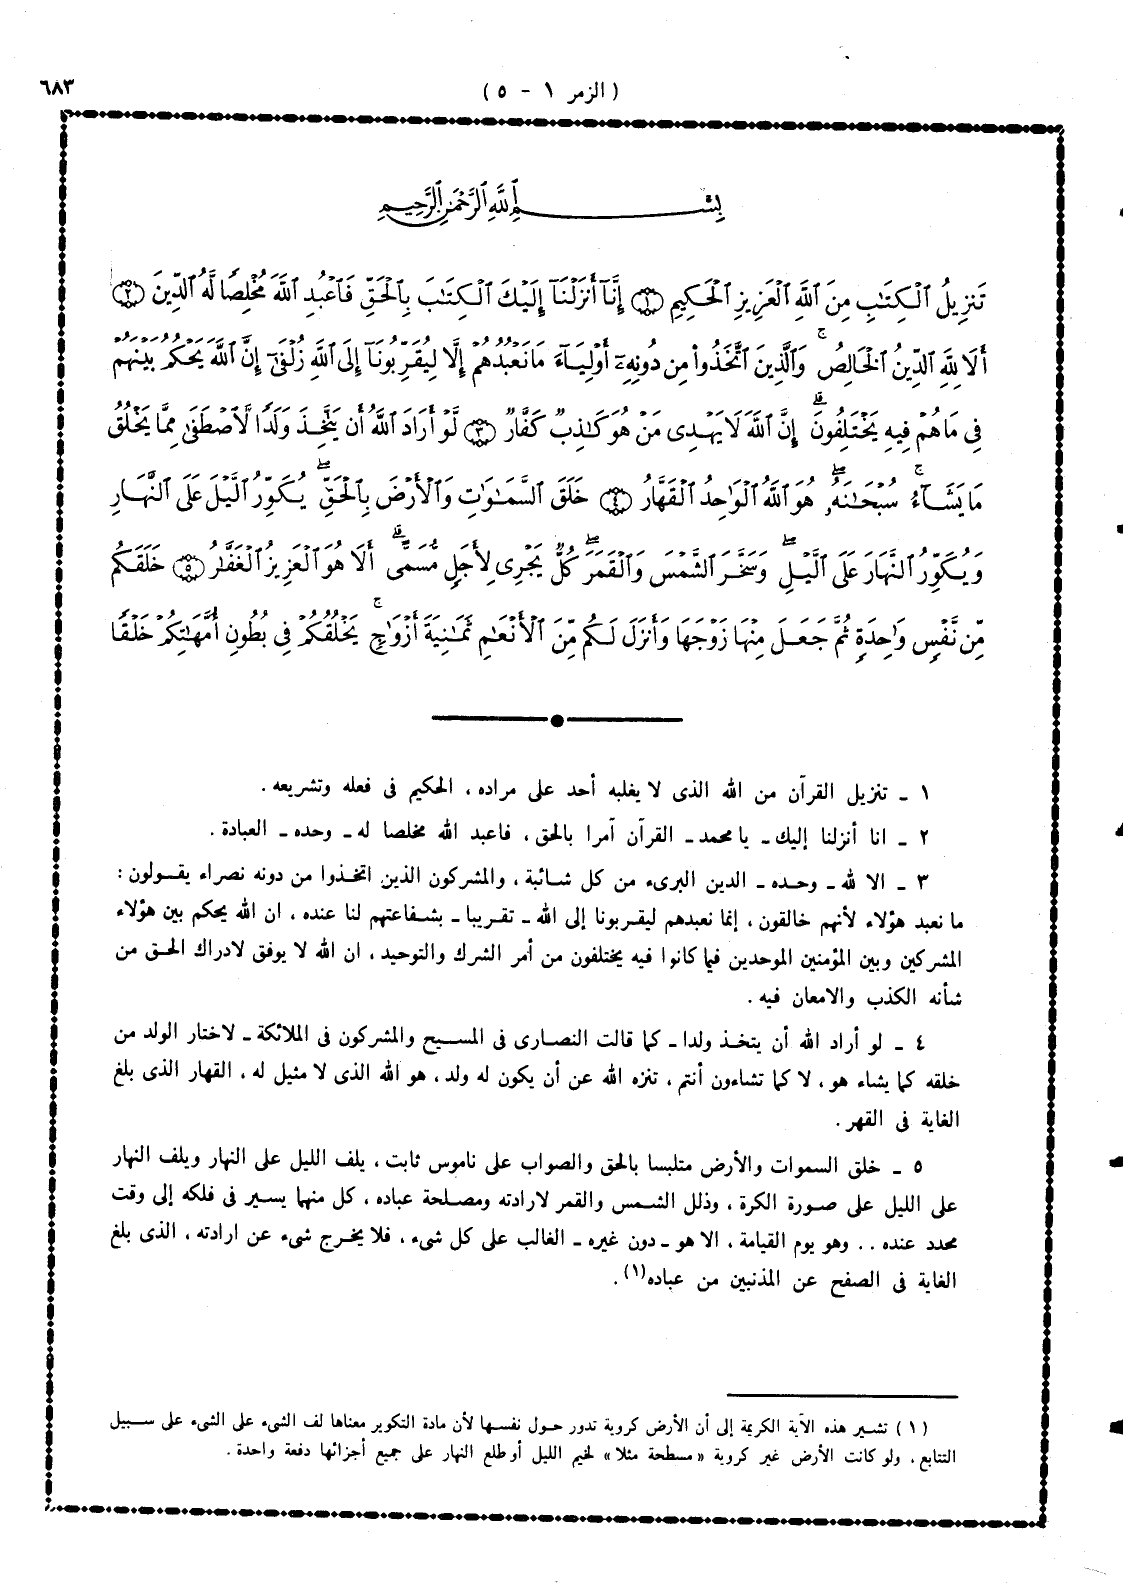 ٦٨٣
( الزمر ١ - ٥ )
بِسْمِ ٱللَّهِ ٱلرَّحْمَٰنِ ٱلرَّحِيمِ
تَنزِيلُ ٱلْكِتَٰبِ مِنَ ٱللَّهِ ٱلْعَزِيزِ ٱلْحَكِيمِ ۝١ إِنَّآ أَنزَلْنَآ إِلَيْكَ ٱلْكِتَٰبَ بِٱلْحَقِّ فَٱعْبُدِ ٱللَّهَ مُخْلِصًا لَّهُ ٱلدِّينَ ۝٢
أَلَا لِلَّهِ ٱلدِّينُ ٱلْخَالِصُ ۚ وَٱلَّذِينَ ٱتَّخَذُوا۟ مِن دُونِهِۦٓ أَوْلِيَآءَ مَا نَعْبُدُهُمْ إِلَّا لِيُقَرِّبُونَآ إِلَى ٱللَّهِ زُلْفَىٰٓ إِنَّ ٱللَّهَ يَحْكُمُ بَيْنَهُمْ
فِى مَا هُمْ فِيهِ يَخْتَلِفُونَ ۗ إِنَّ ٱللَّهَ لَا يَهْدِى مَنْ هُوَ كَٰذِبٌ كَفَّارٌ ۝٣ لَّوْ أَرَادَ ٱللَّهُ أَن يَتَّخِذَ وَلَدًا لَّٱصْطَفَىٰ مِمَّا يَخْلُقُ
مَا يَشَآءُ ۚ سُبْحَٰنَهُۥ ۖ هُوَ ٱللَّهُ ٱلْوَٰحِدُ ٱلْقَهَّارُ ۝٤ خَلَقَ ٱلسَّمَٰوَٰتِ وَٱلْأَرْضَ بِٱلْحَقِّ ۖ يُكَوِّرُ ٱلَّيْلَ عَلَى ٱلنَّهَارِ
وَيُكَوِّرُ ٱلنَّهَارَ عَلَى ٱلَّيْلِ ۖ وَسَخَّرَ ٱلشَّمْسَ وَٱلْقَمَرَ ۖ كُلٌّ يَجْرِى لِأَجَلٍ مُّسَمًّى ۗ أَلَا هُوَ ٱلْعَزِيزُ ٱلْغَفَّٰرُ ۝٥ خَلَقَكُم
مِّن نَّفْسٍ وَٰحِدَةٍ ثُمَّ جَعَلَ مِنْهَا زَوْجَهَا وَأَنزَلَ لَكُم مِّنَ ٱلْأَنْعَٰمِ ثَمَٰنِيَةَ أَزْوَٰجٍ ۚ يَخْلُقُكُمْ فِى بُطُونِ أُمَّهَٰتِكُمْ خَلْقًا
١ ـ تنزيل القرآن من الله الذى لا يغلبه أحد على مراده ، الحكيم فى فعله وتشريعه .
٢ ـ انا أنزلنا إليك ـ يا محمد ـ القرآن آمرا بالحق ، فاعبد الله مخلصا له ـ وحده ـ العبادة .
٣ ـ الا لله ـ وحده ـ الدين البرىء من كل شائبة ، والمشركون الذين اتخذوا من دونه نصراء يقولون :
ما نعبد هؤلاء لأنهم خالقون ، إنما نعبدهم ليقربونا إلى الله ـ تقريبا ـ بشفاعتهم لنا عنده ، ان الله يحكم بين هؤلاء
المشركين وبين المؤمنين الموحدين فيما كانوا فيه يختلفون من أمر الشرك والتوحيد ، ان الله لا يوفق لادراك الحق من
شأنه الكذب والامعان فيه .
٤ ـ لو أراد الله أن يتخذ ولدا ـ كما قالت النصارى فى المسيح والمشركون فى الملائكة ـ لاختار الولد من
خلقه كما يشاء هو ، لا كما تشاءون أنتم ، تنزه الله عن أن يكون له ولد ، هو الله الذى لا مثيل له ، القهار الذى بلغ
الغاية فى القهر .
٥ ـ خلق السموات والأرض متلبسا بالحق والصواب على ناموس ثابت ، يلف الليل على النهار ويلف النهار
على الليل على صورة الكرة ، وذلل الشمس والقمر لارادته ومصلحة عباده ، كل منهما يسير فى فلكه إلى وقت
محدد عنده .. وهو يوم القيامة ، الا هو ـ دون غيره ـ الغالب على كل شىء ، فلا يخرج شىء عن ارادته ، الذى بلغ
الغاية فى الصفح عن المذنبين من عباده(١) .
(١) تشير هذه الآية الكريمة إلى أن الأرض كروية تدور حول نفسها لأن مادة التكوير معناها لف الشىء على الشىء على سبيل
التتابع ، ولو كانت الأرض غير كروية « مسطحة مثلا » لخيم الليل أو طلع النهار على جميع أجزائها دفعة واحدة .